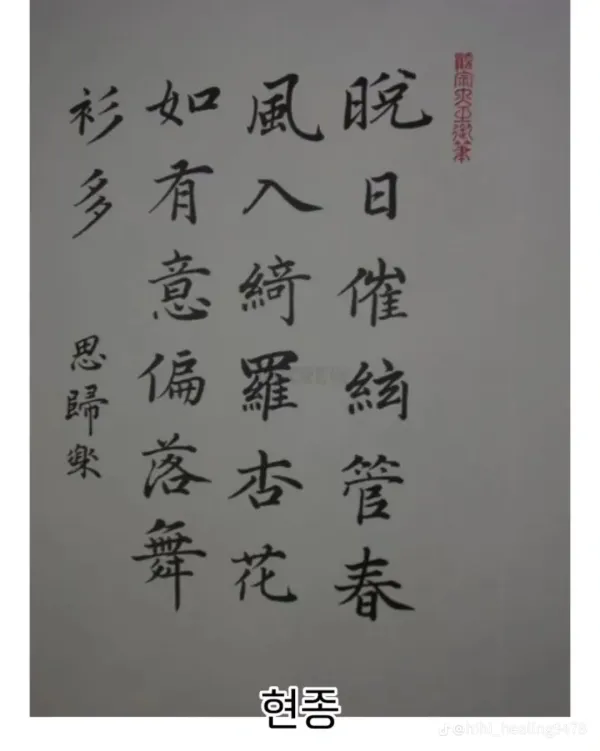 顯宗大王御筆
晚日催絃管春
風入綺羅杏花
如有意偏落舞
衫多
思歸樂
현종
@hihi_healing9478